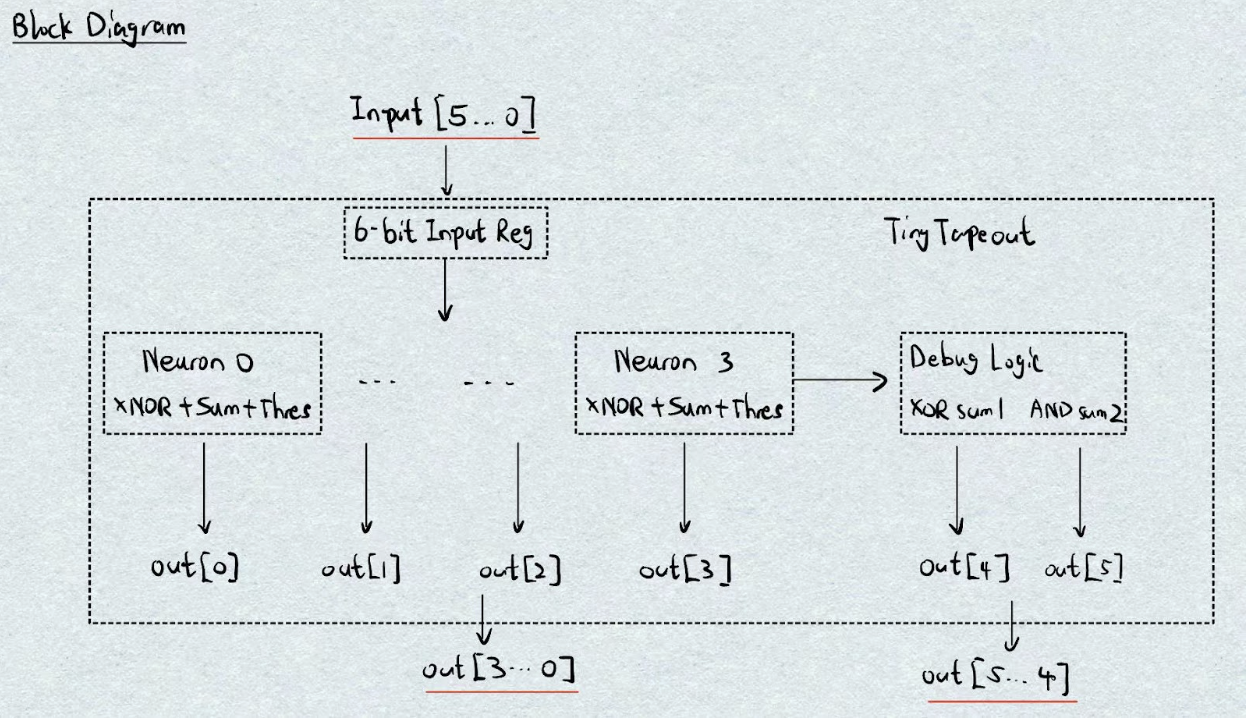 Block Diagram
Input [5...0]
6-bit Input Reg
TinyTapeout
Neuron 0
XNOR + Sum + Thres
... ...
Neuron 3
XNOR + Sum + Thres
Debug Logic
XOR sum1 AND sum2
out[0]
out[1]
out[2]
out[3]
out[4]
out[5]
out[3...0]
out[5...4]